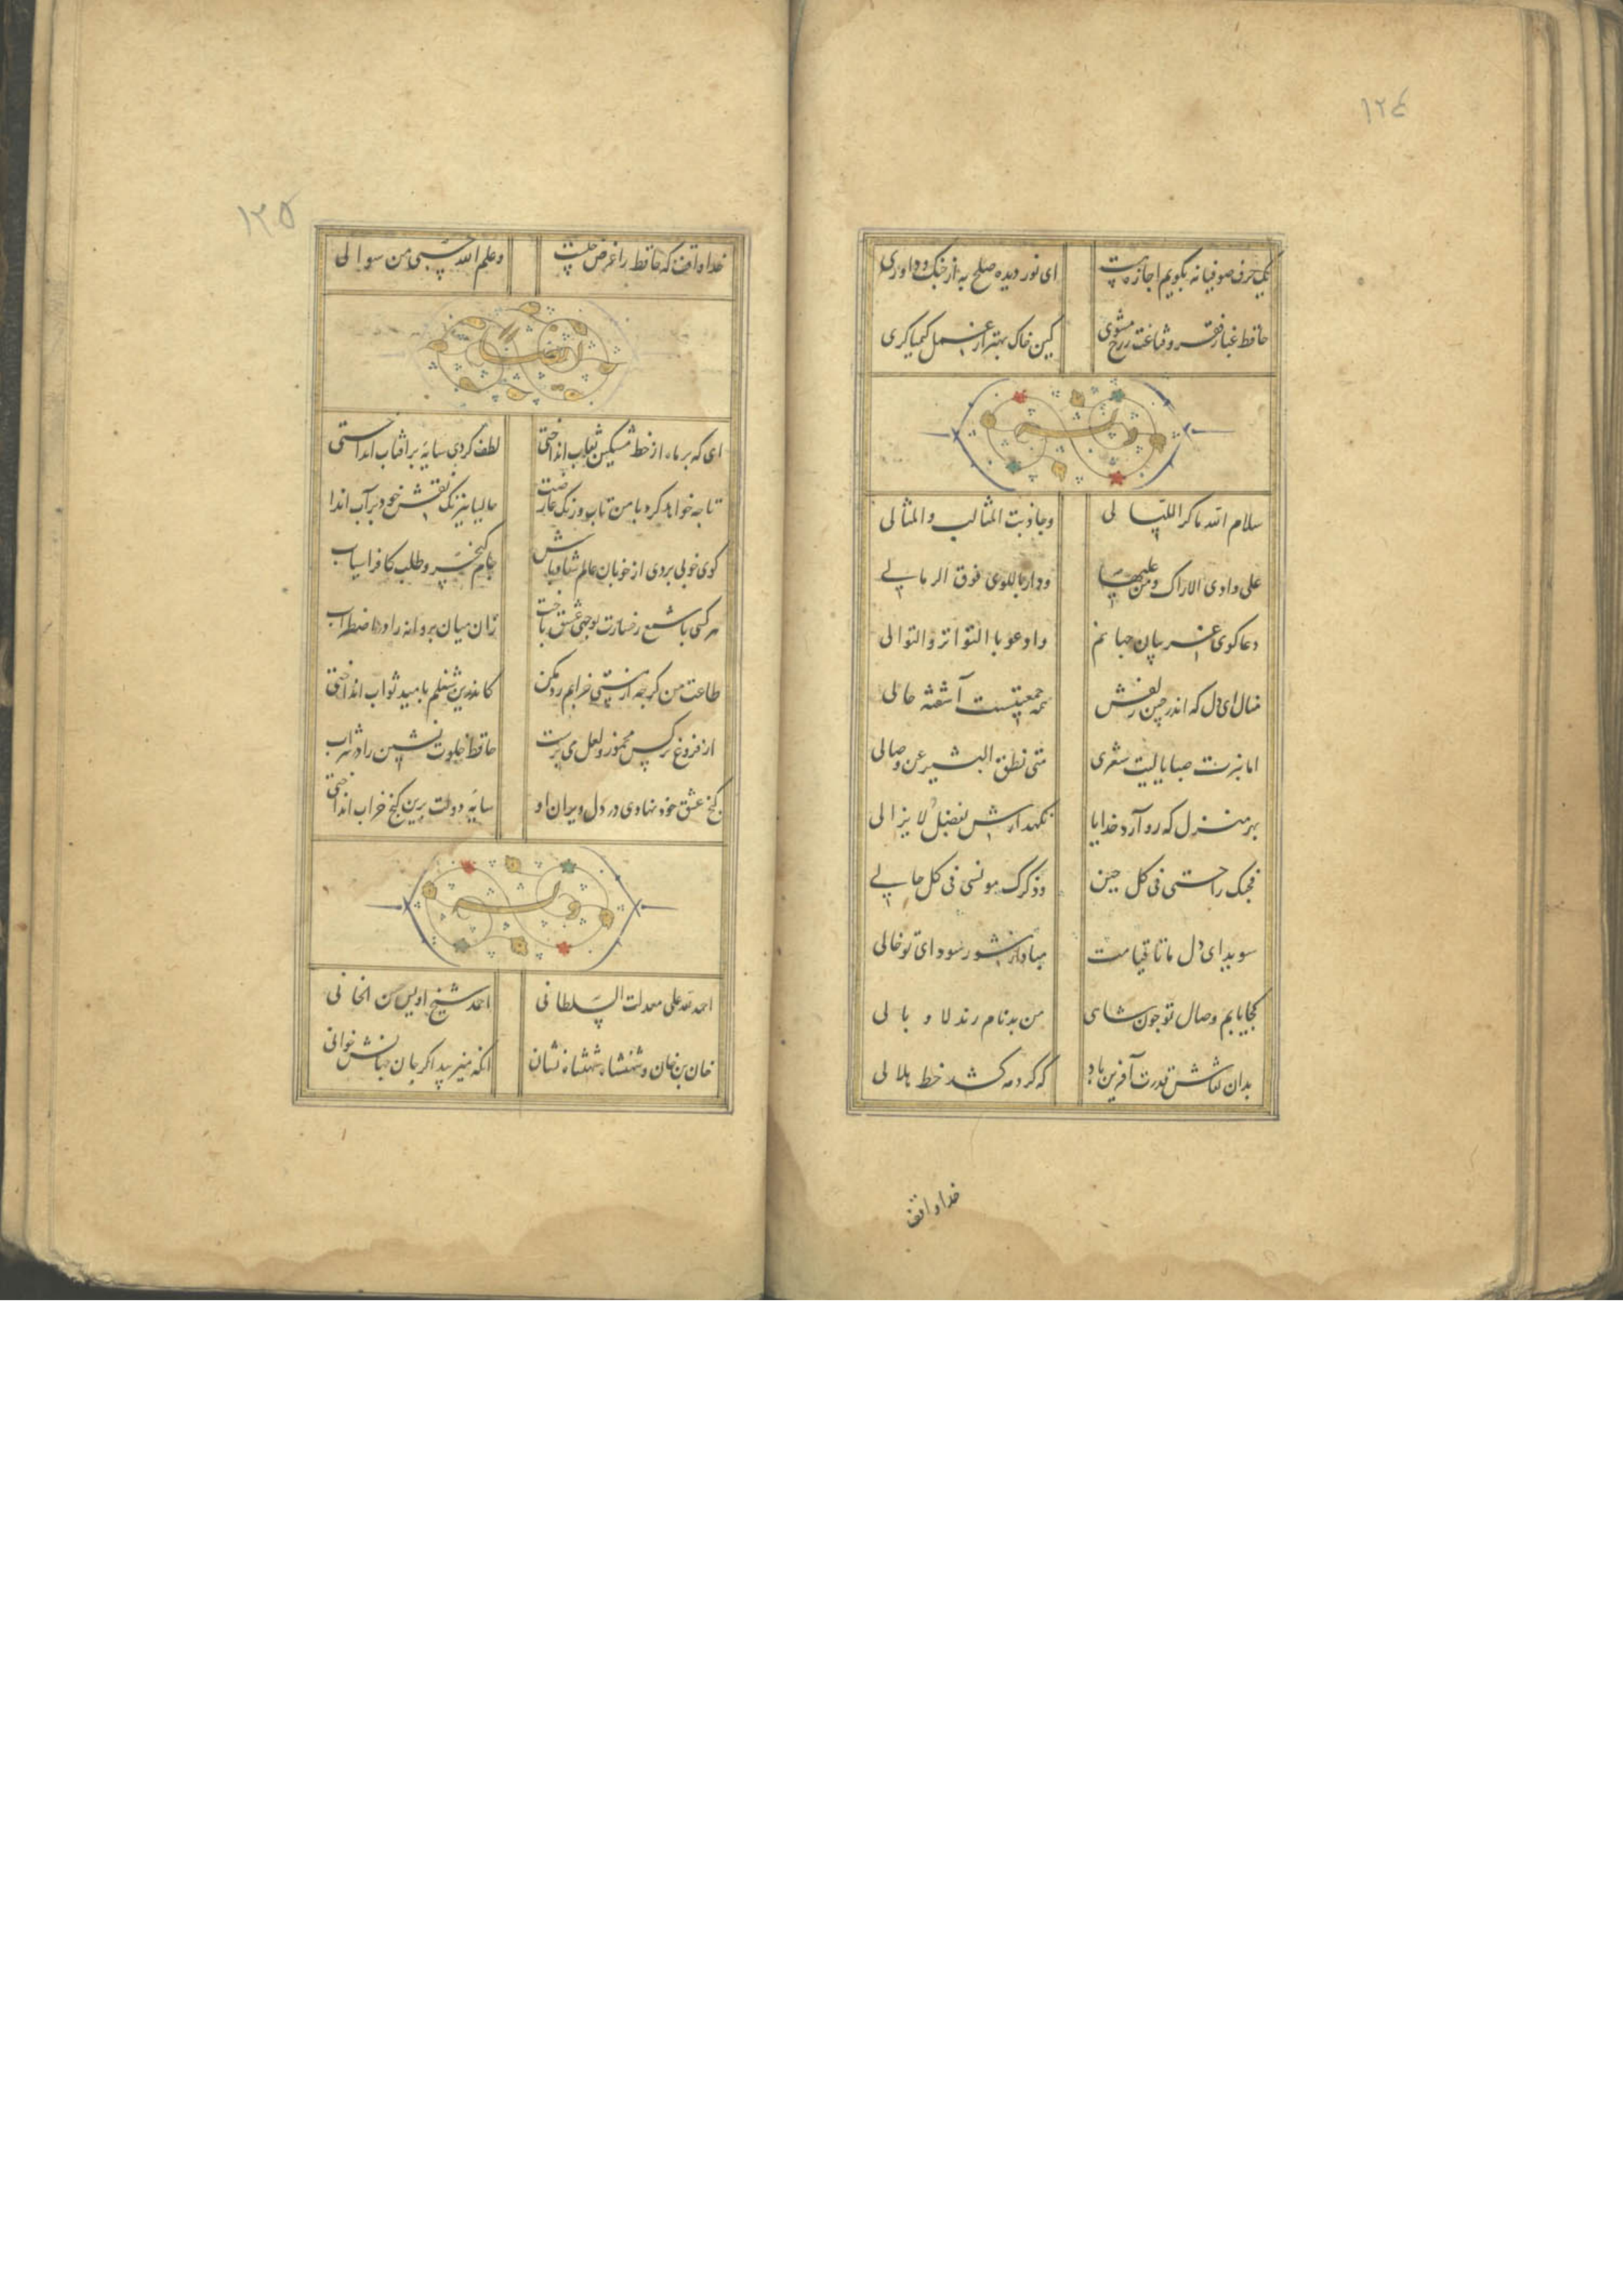 ١٢٤
یک حرف صوفیانه بگویم اجازتست ای نور دیده صلح به از جنک و داوری
حافظ غبار فقر و قناعت ز رخ مشوی کین خاک بهتر از عمل کیمیاکری
وله
سلام الله ماکر اللیالی وجاوبت المثانی والمثالی
علی وادی الاراک ومن علیها ودار باللوی فوق الرمالی
دعا کوی غریبان جهانم وادعو باالتواتر والتوالی
منال ای دل که اندر چین زلفش همه جمعیتست آشفته حالی
اما نبزت صبا یالیت شعری متی نطق البشیر عن وصالی
بهر منزل که رو آرد خدایا نکهدارش بفضل لایزالی
فحبک راحتی فی کل حین وذکرک مونسی فی کل حالی
سویدای دل ما تا قیامت مبادا از شور سودای تو خالی
کجا یابم وصال تو جون شاهی من بدنام رند لاوبالی
بدان نقاش قدرت آفرین باد که کرد مه کشد خط هلالی
خدا واقف
١٢٥
خدا واقف که حافظ را غرض چیست وعلم الله حسبی من سوالی
ای که بر ماه از خط مشکین نقاب انداختی لطف کردی سایه بر افتاب انداختی
تا جه خواهد کرد با من تاب و رنک عارضت حالیا نیرنک نقش خود بر آب اندا
کوی خوبی بردی از خوبان عالم شاد باش جام کیخسرو طلب کافراسیاب
هر کسی با شمع رخسارت بوجهی عشق باخت زان میان پروانه را در اضطراب
طاعت من کرجه از مستی خرابم رد مکن کاندرین شغلم بامید ثواب انداختی
از فروغ نرکس مخمور و لعل می پرست حافظ خلوت نشین را در شراب
کنج عشق خود نهادی در دل ویران او سایه دولت برین کنج خراب انداختی
وله
احمد لله علی معدلت السلطانی احمد شیخ اویس حسن الخانی
خان بن خان و شهنشاه شهنشاه نشان انکه میزیبد اکر جان جهانش خوانی